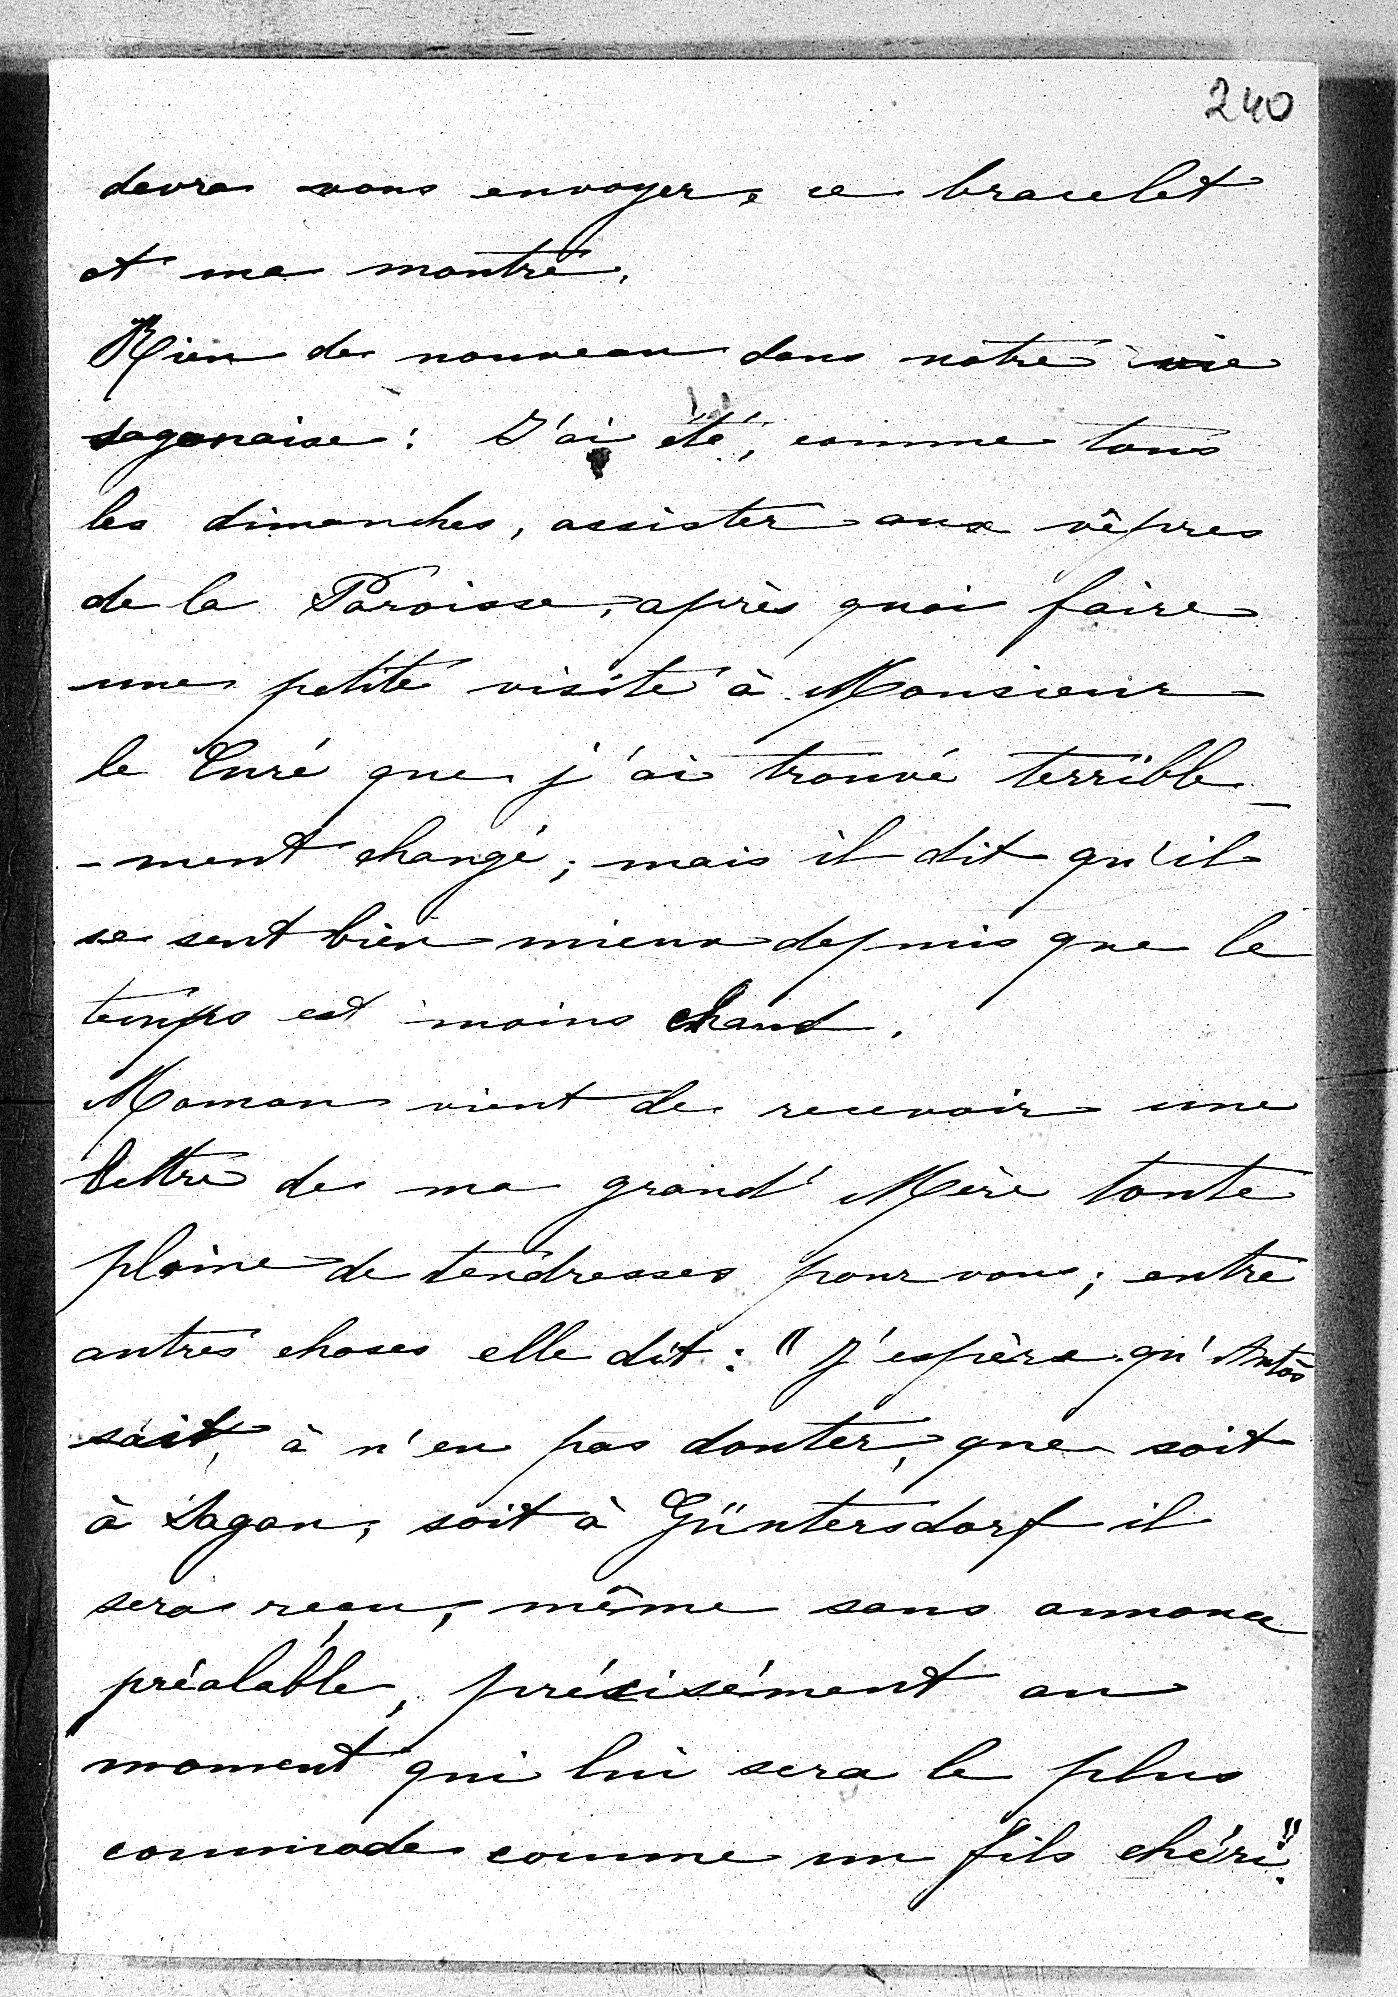 240
devra vous envoyer, ce bracelet
et ma montre.
Rien de nouveau dans notre vie
saganaise : J'ai été, comme tous
les dimanches, assister aux vêpres
de la Paroisse, après quoi faire
une petite visite à Monsieur
le Curé que j'ai trouvé terrible-
-ment changé ; mais il dit qu'il
se sent bien mieux depuis que le
temps est moins chaud.
Maman vient de recevoir une
lettre de ma grand' Mère toute
pleine de tendresses pour vous ; entre
autres choses elle dit : "J'espère qu'Antos
sait, à n'en pas douter, que soit
à Sagan, soit à Güntersdorf il
sera reçu, même sans annonce
préalable, précisément au
moment qui lui sera le plus
commode comme un fils chéri".